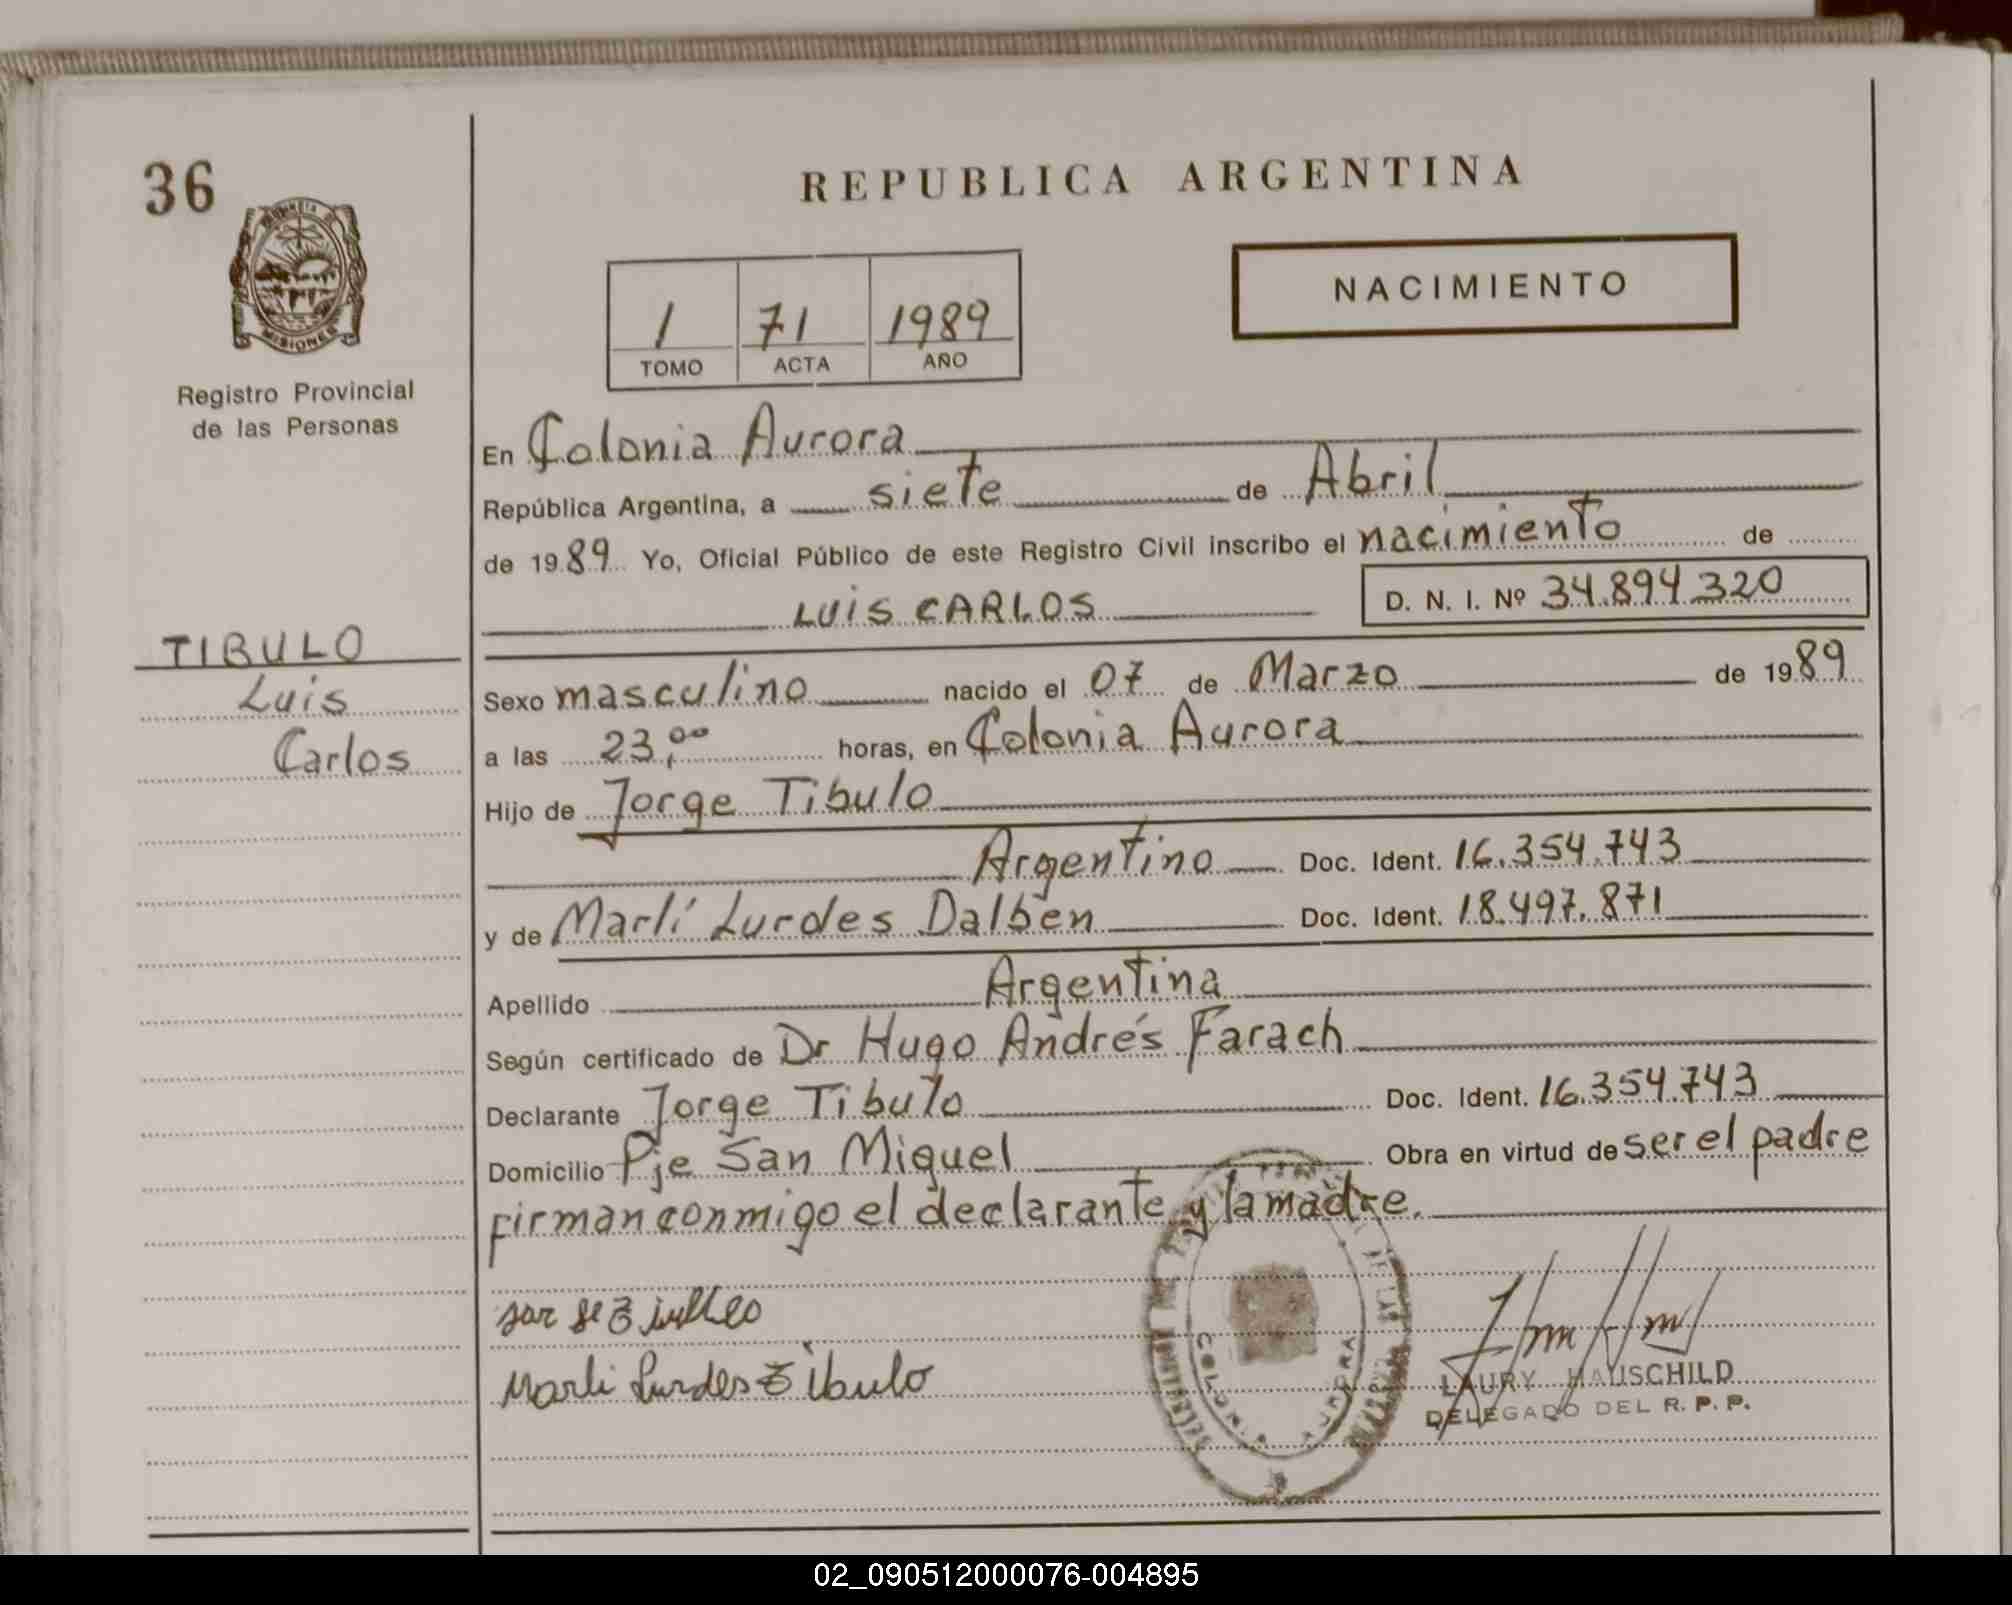 36
REPUBLICA ARGENTINA
PROVINCIA DE
MISIONES
NACIMIENTO
1 71 1989
TOMO ACTA AÑO
Registro Provincial
de las Personas
En Colonia Aurora
República Argentina, a siete de Abril
de 1989 Yo, Oficial Público de este Registro Civil inscribo el nacimiento de
LUIS CARLOS D. N. I. Nº 34.894.320
TIBULO
Luis
Carlos
Sexo masculino nacido el 07 de Marzo de 1989
a las 23,00 horas, en Colonia Aurora
Hijo de Jorge Tibulo
Argentino Doc. Ident. 16.354.743
y de Marlí Lurdes Dalben Doc. Ident. 18.497.871
Apellido Argentina
Según certificado de Dr Hugo Andrés Farach
Declarante Jorge Tibulo Doc. Ident. 16.354.743
Domicilio Pje San Miguel Obra en virtud de ser el padre
firman conmigo el declarante y la madre.
Marli Lurdes Tibulo
COLONIA AURORA
LAURY HAUSCHILD
DELEGADO DEL R. P. P.
02_090512000076-004895